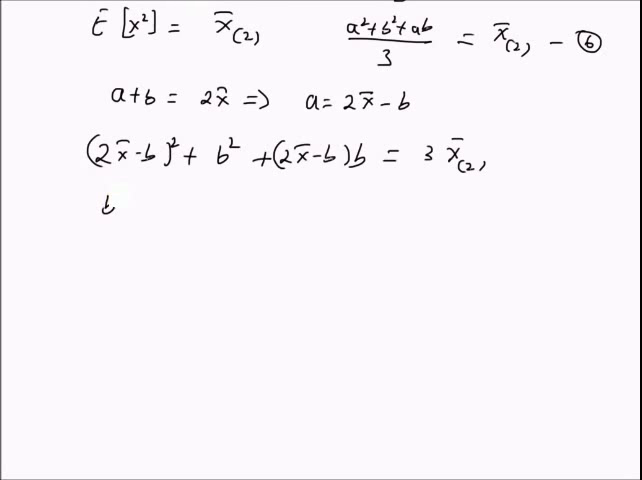 E [x²] = x̄₍₂₎    (a²+b²+ab)/3 = x̄₍₂₎ - ⑥
a+b = 2x̄ => a = 2x̄ - b
(2x̄-b)² + b² + (2x̄-b)b = 3 x̄₍₂₎
b